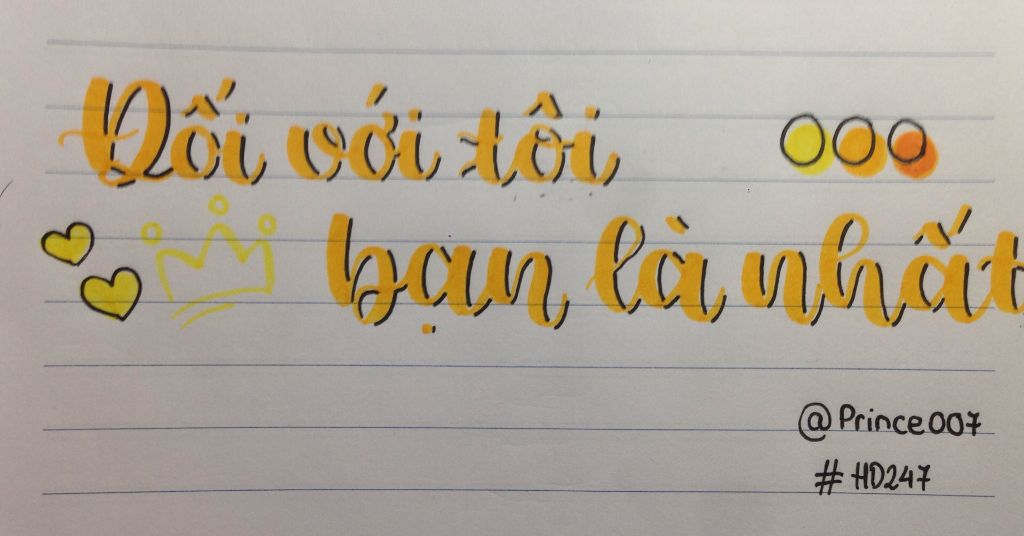 Đối với tôi
bạn là nhất
@Prince007
#HD247